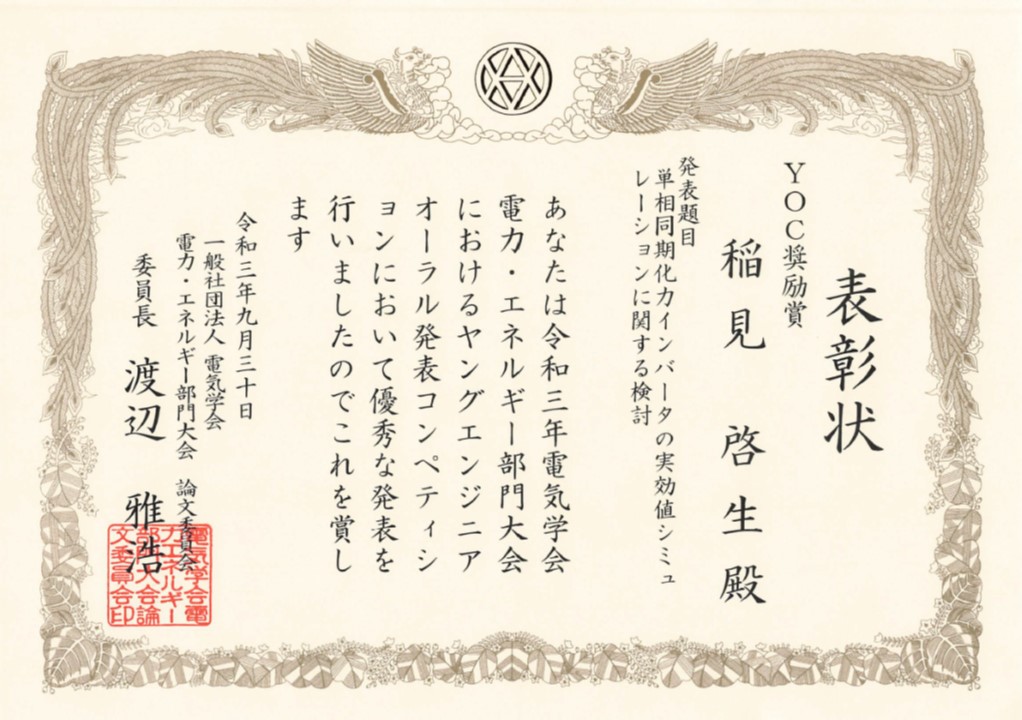 表彰状
YOC奨励賞
稲見 啓生 殿
発表題目
単相同期化力インバータの実効値シミュ
レーションに関する検討
あなたは令和三年電気学会
電力・エネルギー部門大会
におけるヤングエンジニア
オーラル発表コンペティシ
ョンにおいて優秀な発表を
行いましたのでこれを賞し
ます
令和三年九月三十日
一般社団法人 電気学会
電力・エネルギー部門大会 論文委員会
委員長 渡辺 雅浩
電気学会電
力エネルギー
部門大会論
文委員会印